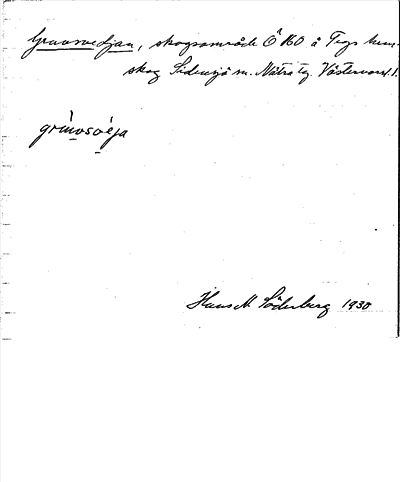 Gransvedjan, skogsområde Ö 160 å Tegs kun-
skog Sidensjö sn. Nätra tg. Västernorrl. l.
Hans M. Söderberg 1930